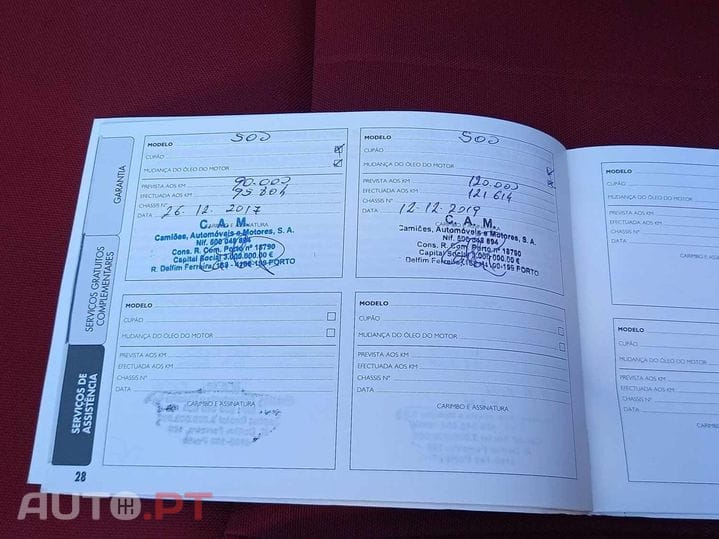 GARANTIA
SERVIÇOS GRATUITOS
COMPLEMENTARES
SERVIÇOS DE
ASSISTÊNCIA
MODELO 500
CUPÃO
MUDANÇA DO ÓLEO DO MOTOR
PREVISTA AOS KM 90.000
EFECTUADA AOS KM 95 804
CHASSIS Nº
DATA 26-12-2017
CARIMBO E ASSINATURA
C. A. M.
Camiões, Automóveis e Motores, S. A.
Nif. 500 048 694
Cons. R. Com. Porto nº 16790
Capital Social 3.000.000.00 €
R. Delfim Ferreira, PORTO
MODELO 500
CUPÃO
MUDANÇA DO ÓLEO DO MOTOR
PREVISTA AOS KM 120.000
EFECTUADA AOS KM 121 614
CHASSIS Nº
DATA 12-12-2019
CARIMBO E ASSINATURA
C. A. M.
Camiões, Automóveis e Motores, S. A.
Nif. 694
Cons. R. Com. Porto nº 16790
Capital Social 3.000 000.00 €
Delfim Ferreira, PORTO
MODELO
CUPÃO
MUDANÇA DO ÓLEO DO MOTOR
PREVISTA AOS KM
EFECTUADA AOS KM
CHASSIS Nº
DATA
CARIMBO E ASSINATURA
MODELO
CUPÃO
MUDANÇA DO ÓLEO DO MOTOR
PREVISTA AOS KM
EFECTUADA AOS KM
CHASSIS Nº
DATA
CARIMBO E ASSINATURA
MODELO
CUPÃO
MUDANÇA DO ÓLEO DO MOTOR
PREVISTA AOS KM
EFECTUADA AOS KM
CHASSIS Nº
DATA
MODELO
CUPÃO
MUDANÇA DO ÓLEO DO MOTOR
PREVISTA AOS KM
EFECTUADA AOS KM
CHASSIS Nº
DATA
28
AUTO.PT